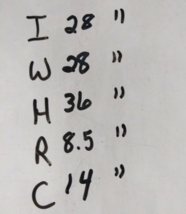 I 28 "
W 28 "
H 36 "
R 8.5 "
C 14 "